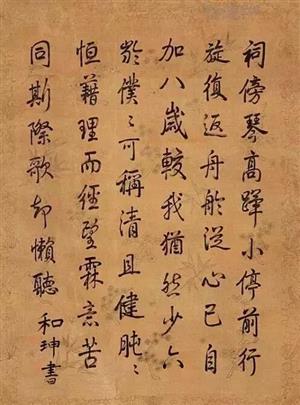 祠傍琴高蹕小停前行
旋復返舟舲從心已自
加八歲較我猶然少六
齡僕僕可稱清且健肫肫
恒藉理而經望霖意苦
同斯際歌却懶聽 和珅書